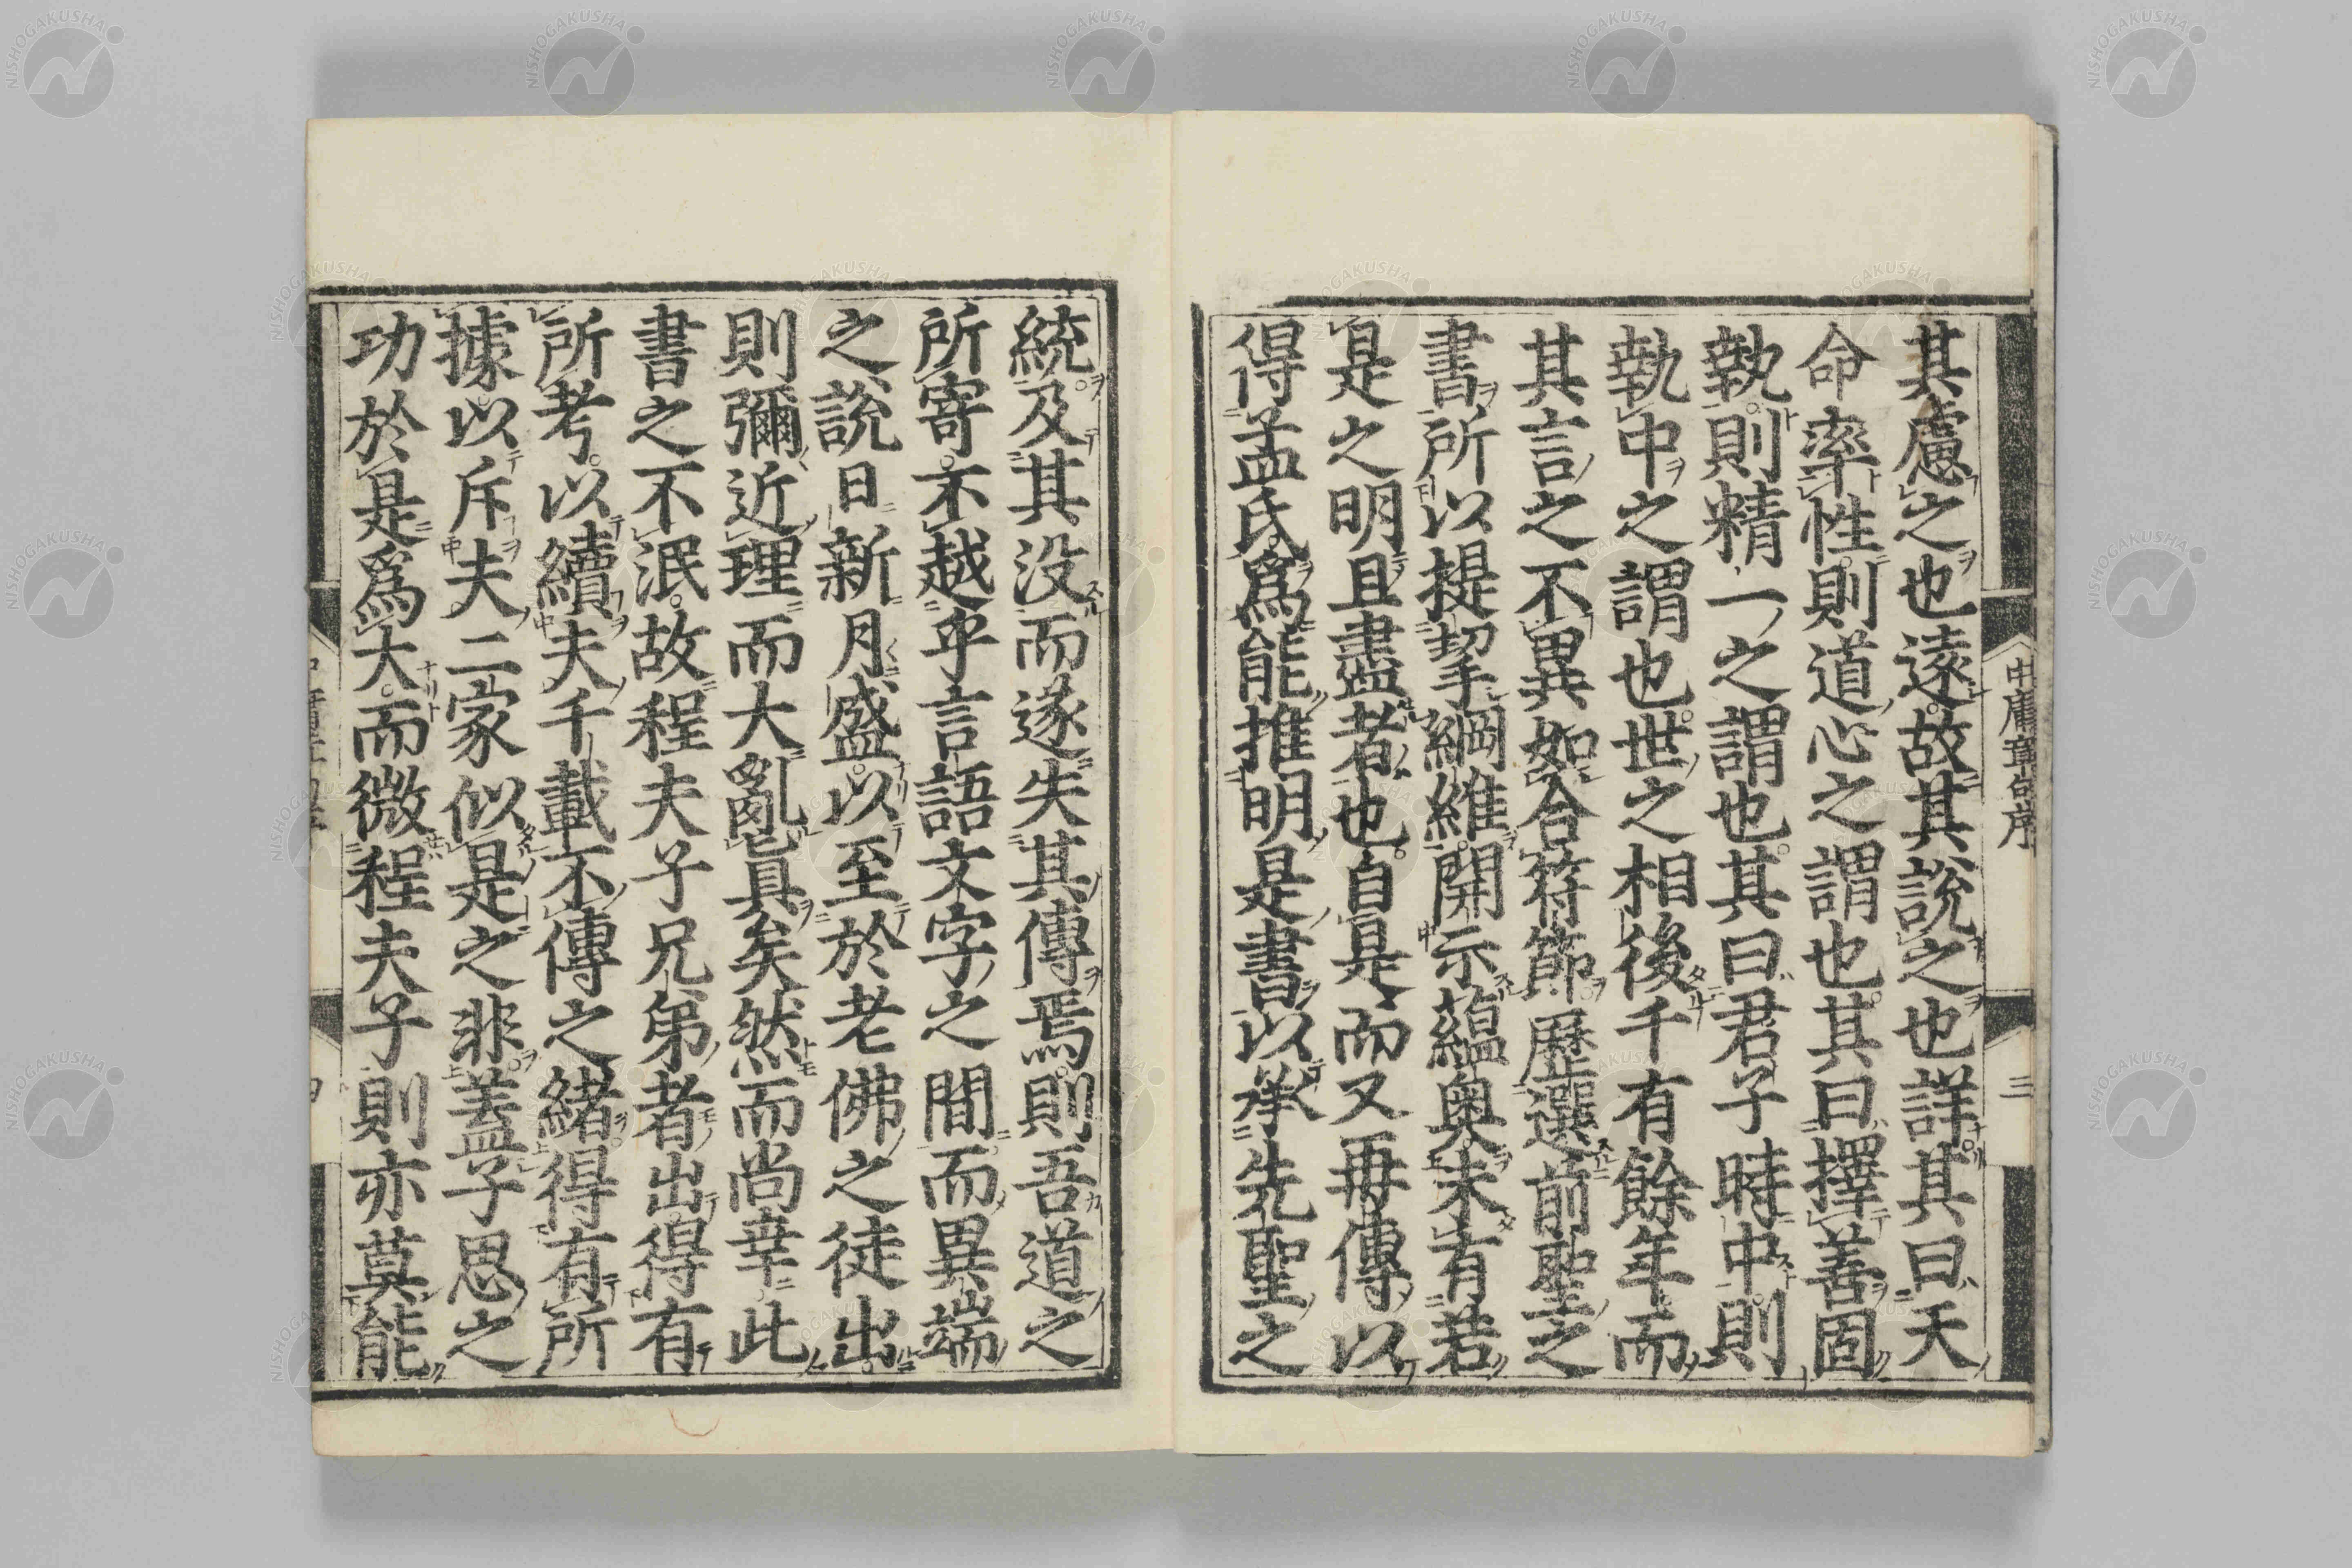 中庸章句序
三
其慮之也遠故其說之也詳其曰天
命率性則道心之謂也其曰擇善固
執則精一之謂也其曰君子時中則
執中之謂也世之相後千有餘年而
其言之不異如合符節歷選前聖之
書所以提挈綱維開示蘊奧未有若
是之明且盡者也自是而又再傳以
得孟氏爲能推明是書以承先聖之
統及其没而遂失其傳焉則吾道之
所寄不越乎言語文字之間而異端
之說日新月盛以至於老佛之徒出
則彌近理而大亂眞矣然而尚幸此
書之不泯故程夫子兄弟者出得有
所考以續夫千載不傳之緒得有所
據以斥夫二家似是之非蓋子思之
功於是爲大而微程夫子則亦莫能
NISHOGAKUSHA